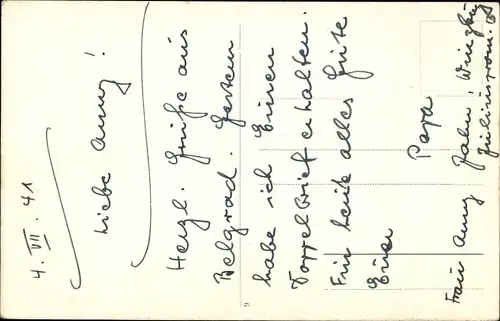 4. VII. 41
Liebe Anny!
Herzl. Grüße aus
Belgrad. Gestern
habe ich Euren
Doppelbrief erhalten.
Für heute alles Gute
Euer
Papa
Frau Anny Jahn Würzburg